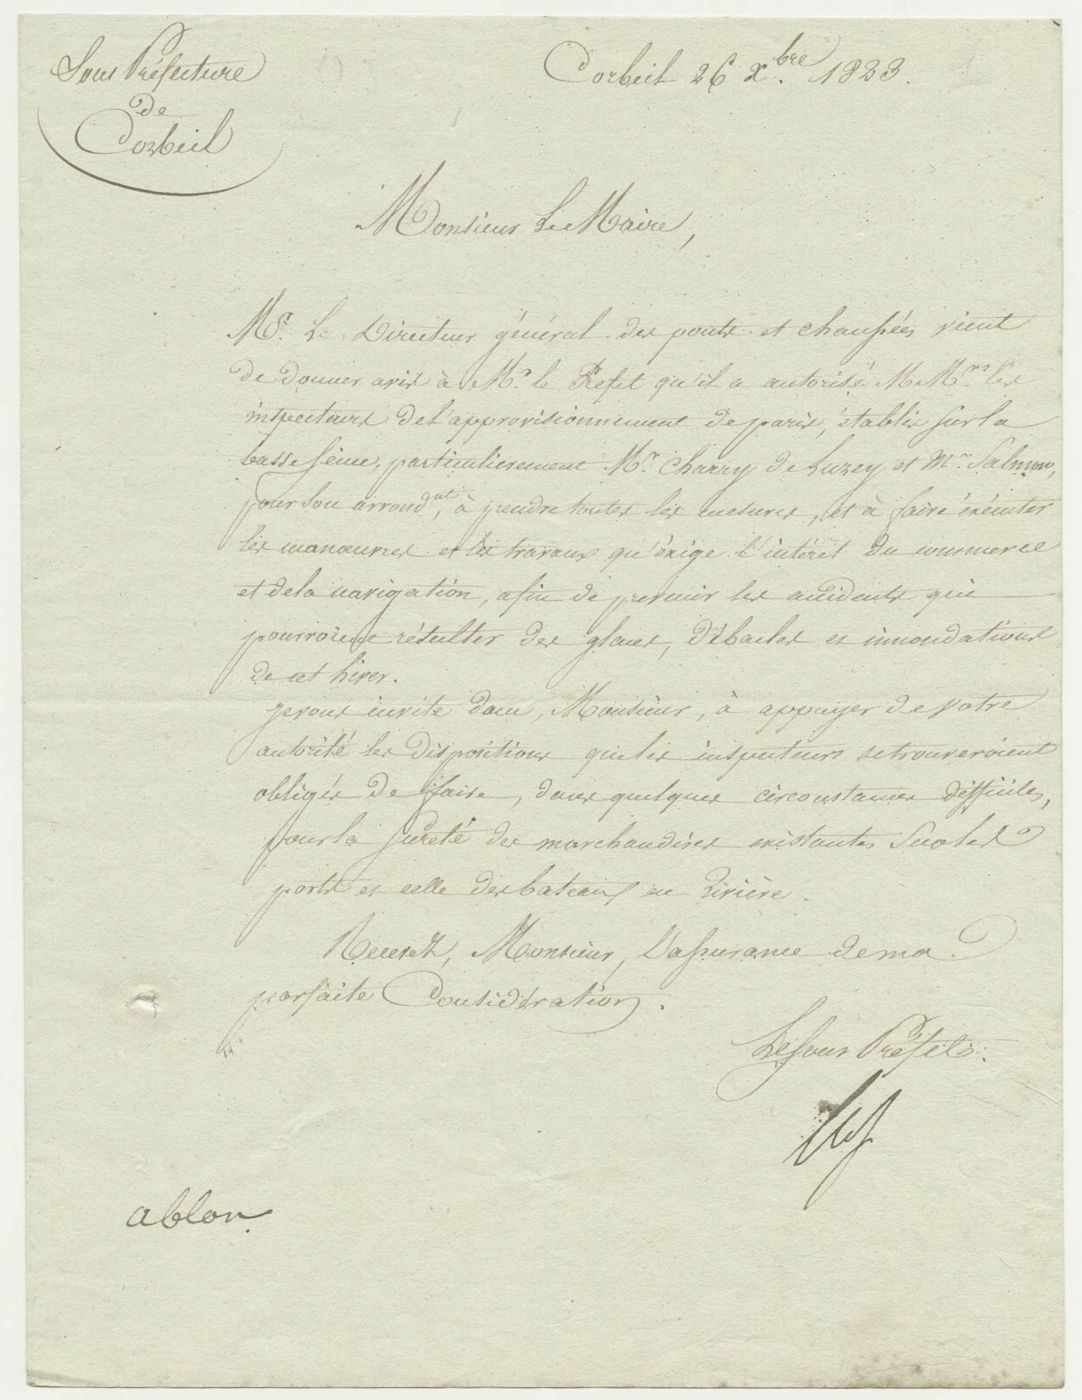 Sous Préfecture
de
Corbeil
Corbeil 26 Xbre 1833.
Monsieur Le Maire,
Mr. Le Directeur général des ponts et chaussées vient
de donner avis à Mr. le Préfet qu'il a autorisé M Mrs les
inspecteurs de l'approvisionnement de paris, établis sur la
basse seine, particulierement Mr. Charry de Luzey et Mr. Salmon,
pour son arrondnt, à prendre toutes les mesures, et à faire éxécuter
les manœuvres et les travaux qu'éxige l'intéret du commerce
et de la navigation, afin de prevenir les accidents qui
pourroient résulter des glaces, débacles et innondations
de cet hiver.
je vous invite donc, Monsieur, à appuyer de votre
autorité les dispositions que les inspecteurs se trouveroient
obligés de faire, dans quelques circonstances difficiles,
pour la sureté des marchandises existantes sur les
ports et celle des bateaux en rivière.
Recevez, Monsieur, l'assurance de ma
parfaite Considération.
Le sous Préfet.
ablon.